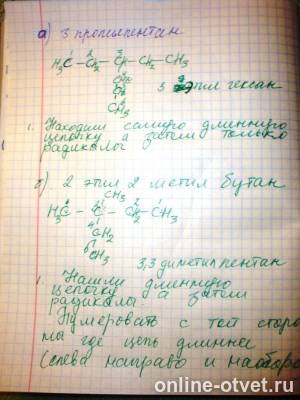 а) 3 пропилпентан
1 2 3
H3C – C – C – C – CH3
H2 H2
CH2
CH2
CH3
3 этил гексан
1. Находим самую длинную
цепочку а затем только
радикалы
б) 2 этил 2 метил бутан
CH3
H3C – C – C – CH3
H2
CH2
CH3
3,3 диметил пентан
1 Нашли длинную
цепочку а затем
радикалы
Нумеровать с той сторо
ны где цепь длиннее
(слева направо и наоборо
online-otvet.ru